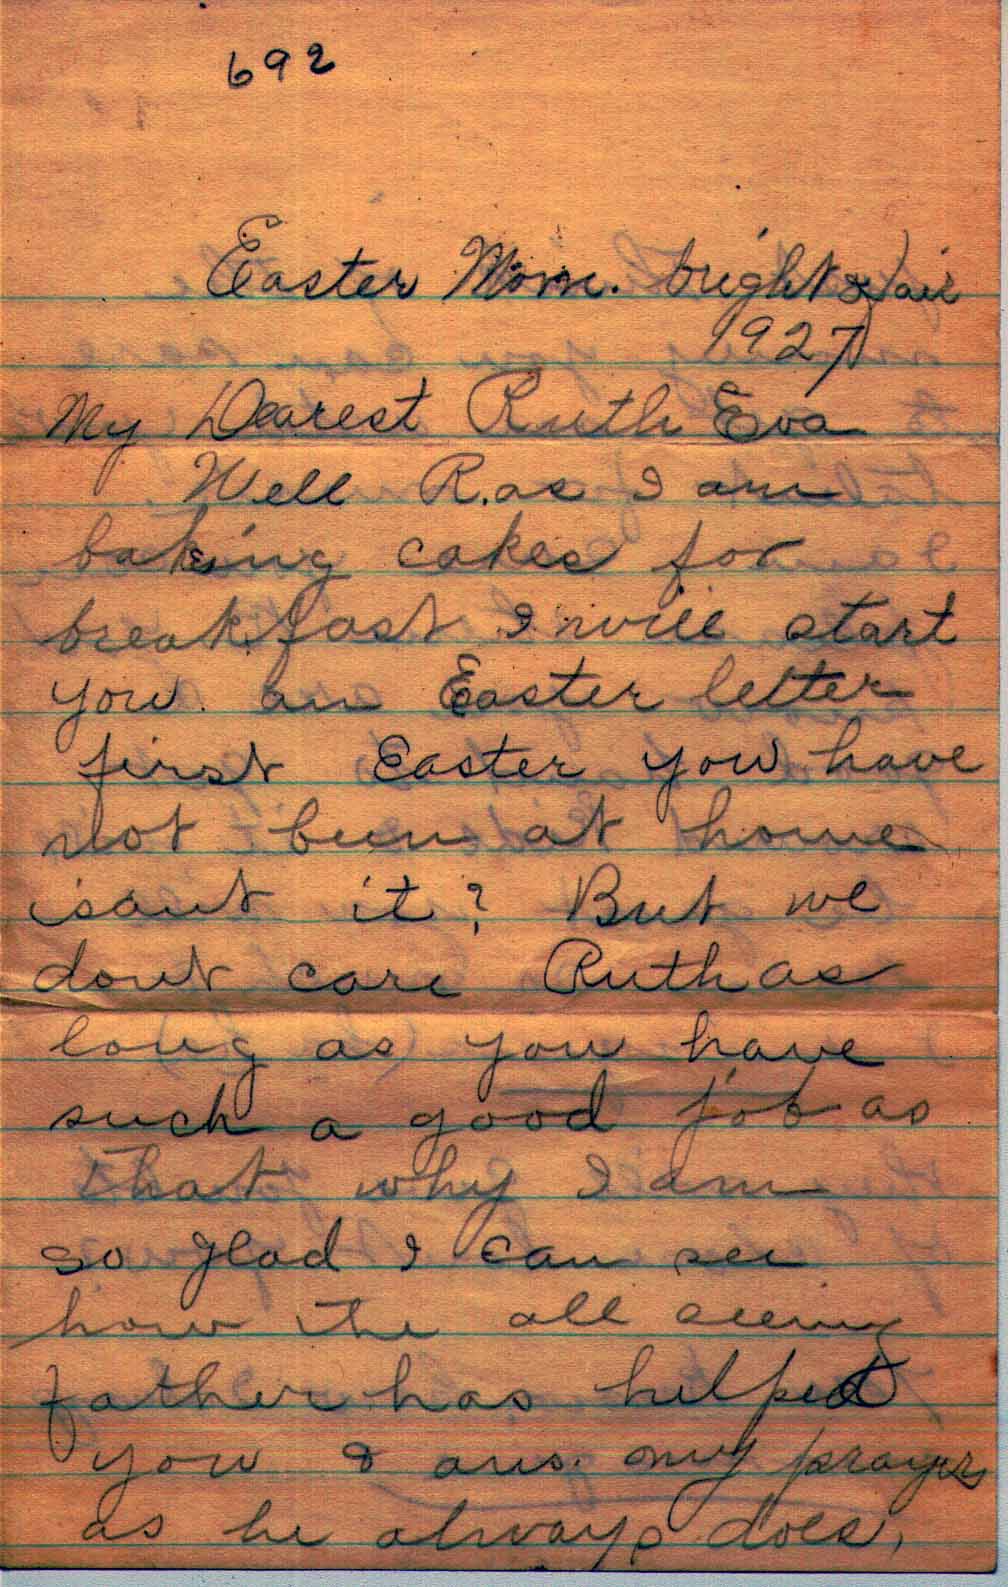 692
Easter Morn. bright & fair
1927
My Dearest Ruth Eva
Well R. as I am
baking cakes for
breakfast I will start
you an Easter letter
first Easter you have
not been at home
isant it? But we
dont care Ruth as
long as you have
such a good job as
that why I am
so glad I can see
how the all seeing
father has helped
you & ans. my prayers
as he always does,